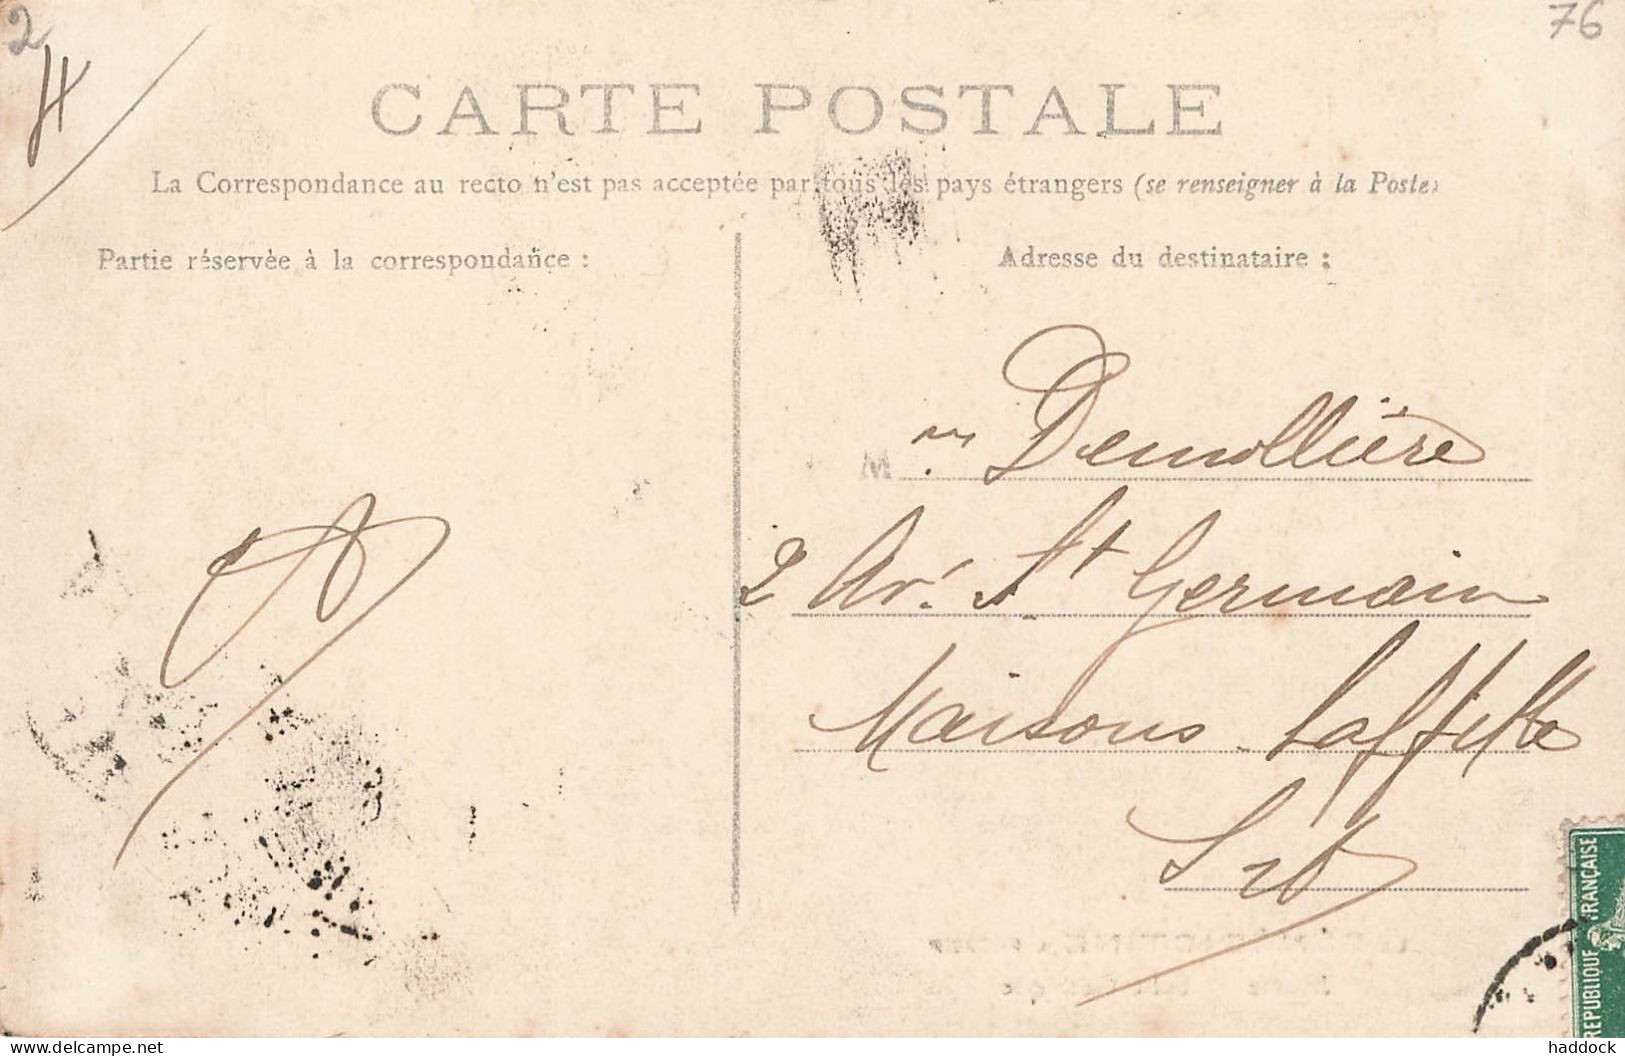 2
76
CARTE POSTALE
La Correspondance au recto n'est pas acceptée par tous les pays étrangers (se renseigner à la Poste)
Partie réservée à la correspondance :
Adresse du destinataire :
M Demollière
2 Av. St Germain
Maisons Laffitte
S et O
REPUBLIQUE FRANÇAISE
www.delcampe.net
haddock